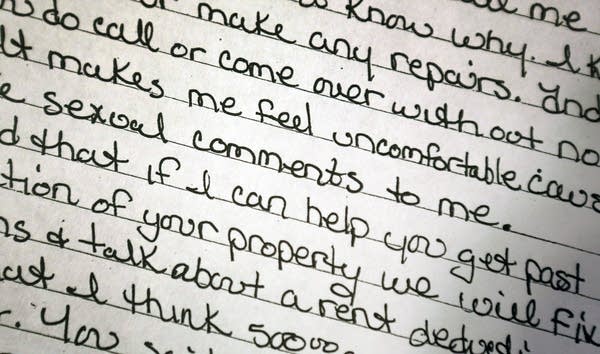 me
know why. I k
make any repairs. And
do call or come over without no
It makes me feel uncomfortable caus
sexual comments to me.
d that if I can help you get past
tion of your property we will fix
ns & talk about a rent
at I think 50000
. You